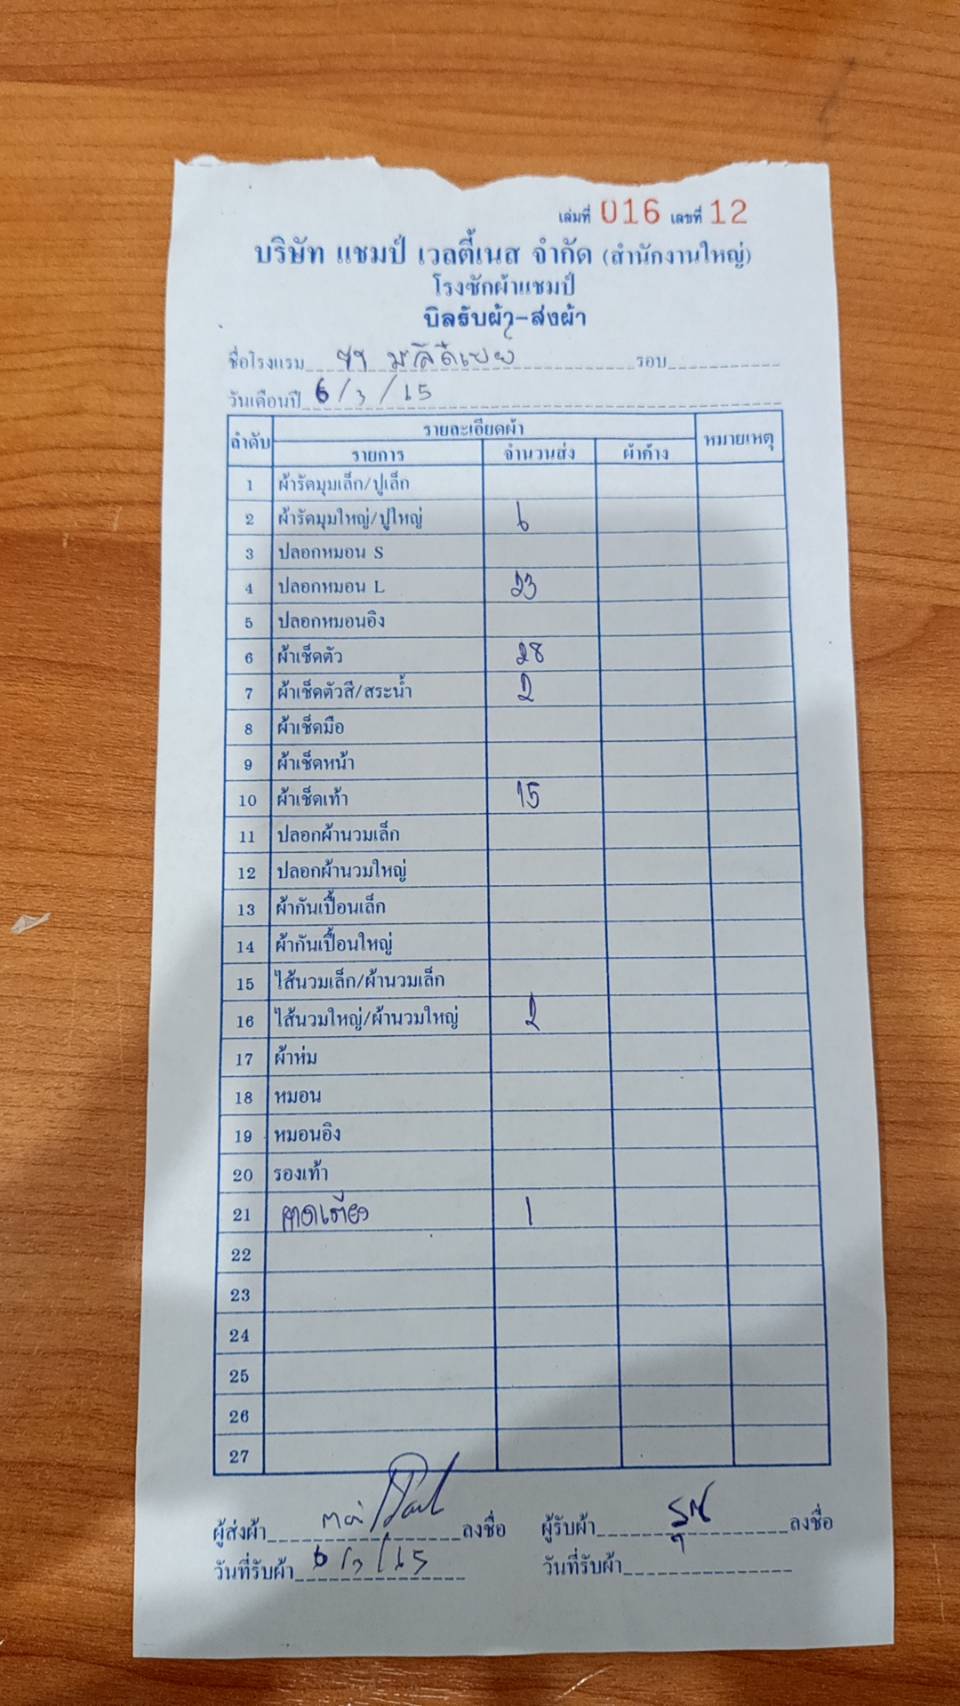 เล่มที่ 016 เลขที่ 12
บริษัท แชมป์ เวลตี้เนส จำกัด (สำนักงานใหญ่)
โรงซักผ้าแชมป์
บิลรับผ้า-ส่งผ้า
ชื่อโรงแรม รอบ
วันเดือนปี 6/3/65
ลำดับ รายละเอียดผ้า หมายเหตุ
รายการ จำนวนส่ง ผ้าค้าง
1 ผ้ารัดมุมเล็ก/ปูเล็ก
2 ผ้ารัดมุมใหญ่/ปูใหญ่ 6
3 ปลอกหมอน S
4 ปลอกหมอน L 23
5 ปลอกหมอนอิง
6 ผ้าเช็ดตัว 28
7 ผ้าเช็ดตัวสี/สระน้ำ 2
8 ผ้าเช็ดมือ
9 ผ้าเช็ดหน้า
10 ผ้าเช็ดเท้า 15
11 ปลอกผ้านวมเล็ก
12 ปลอกผ้านวมใหญ่
13 ผ้ากันเปื้อนเล็ก
14 ผ้ากันเปื้อนใหญ่
15 ไส้นวมเล็ก/ผ้านวมเล็ก
16 ไส้นวมใหญ่/ผ้านวมใหญ่ 2
17 ผ้าห่ม
18 หมอน
19 หมอนอิง
20 รองเท้า
21 คาดเตียง 1
22
23
24
25
26
27
ผู้ส่งผ้า ลงชื่อ ผู้รับผ้า ลงชื่อ
วันที่รับผ้า 6/3/65 วันที่รับผ้า